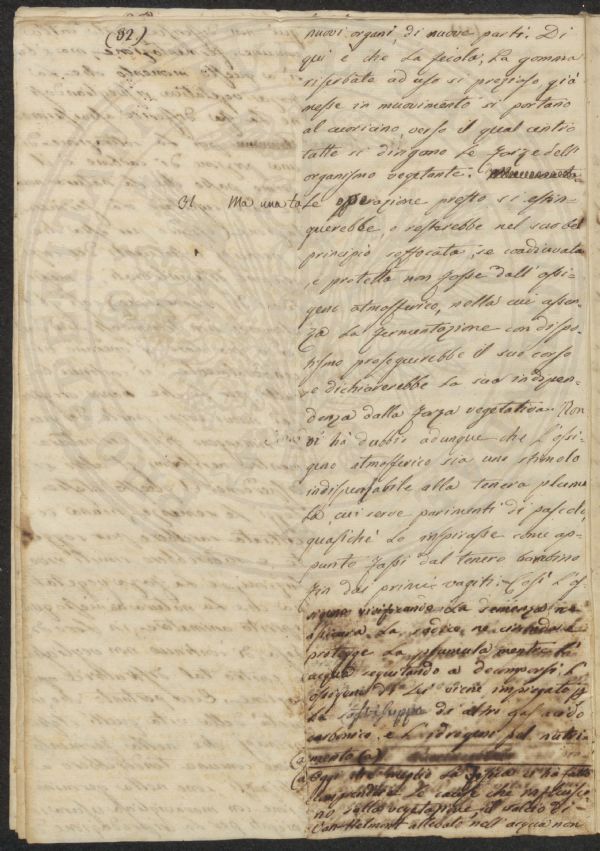 (82.)
nuovi organi, di nuove parti. Di
qui è che la fecola, la gomma
riserbate ad uso sì prezioso, già
messe in muovimento si portano
al corcicino, verso il qual centro
tutte si dirigono le forze dell'
organismo vegetante.
31. Ma una tale operazione presto si estin-
guerebbe, o resterebbe nel suo bel
principio soffocata, se coadiuvata
e protetta non fosse dall'ossi-
geno atmosferico, nella cui assen-
za la fermentazione con dispo-
tismo proseguirebbe il suo corso
e dichiarerebbe la sua indipen-
denza dalla forza vegetativa. Non
vi ha dubbio adunque che l'ossi-
geno atmosferico sia uno stimolo
indispensabile alla tenera plumu
la, cui serve parimenti di pascolo,
quasiché lo inspirasse come ap-
punto fassi dal tenero bambino
fin dai primi vagiti. Così l'os
sigeno vivificando la semenza, ne
la radice, ne
protegge la plumula mentre l'
acqua seguitando a decomporsi l'
ossigeno di lei viene impiegato p
la di altro gas acido
carbonico, e l'idrogeno pel nutri-
mento (a)
(a) Oggi che meglio la fisica ci ha fatto
comprendere le cause che influisco
no sulla vegetazione, il salcio di
Van-Helmont allevato nell'acqua non